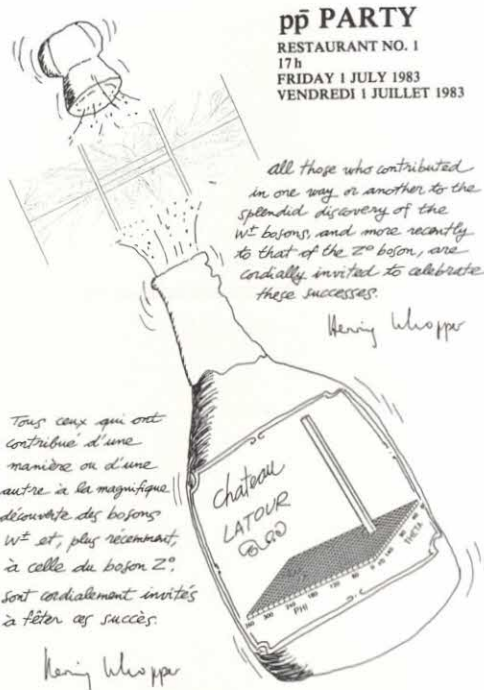 pp̄ PARTY
RESTAURANT NO. 1
17 h
FRIDAY 1 JULY 1983
VENDREDI 1 JUILLET 1983
all those who contributed
in one way or another to the
splendid discovery of the
W± bosons, and more recently
to that of the Z° boson, are
cordially invited to celebrate
these successes.
Herwig Schopper
Tous ceux qui ont
contribué d'une
manière ou d'une
autre à la magnifique
découverte des bosons
W± et, plus récemment,
à celle du boson Z°,
sont cordialement invités
à fêter ces succès.
Herwig Schopper
chateau
LATOUR
360 300 240 180 120 60 0
PHI
THETA